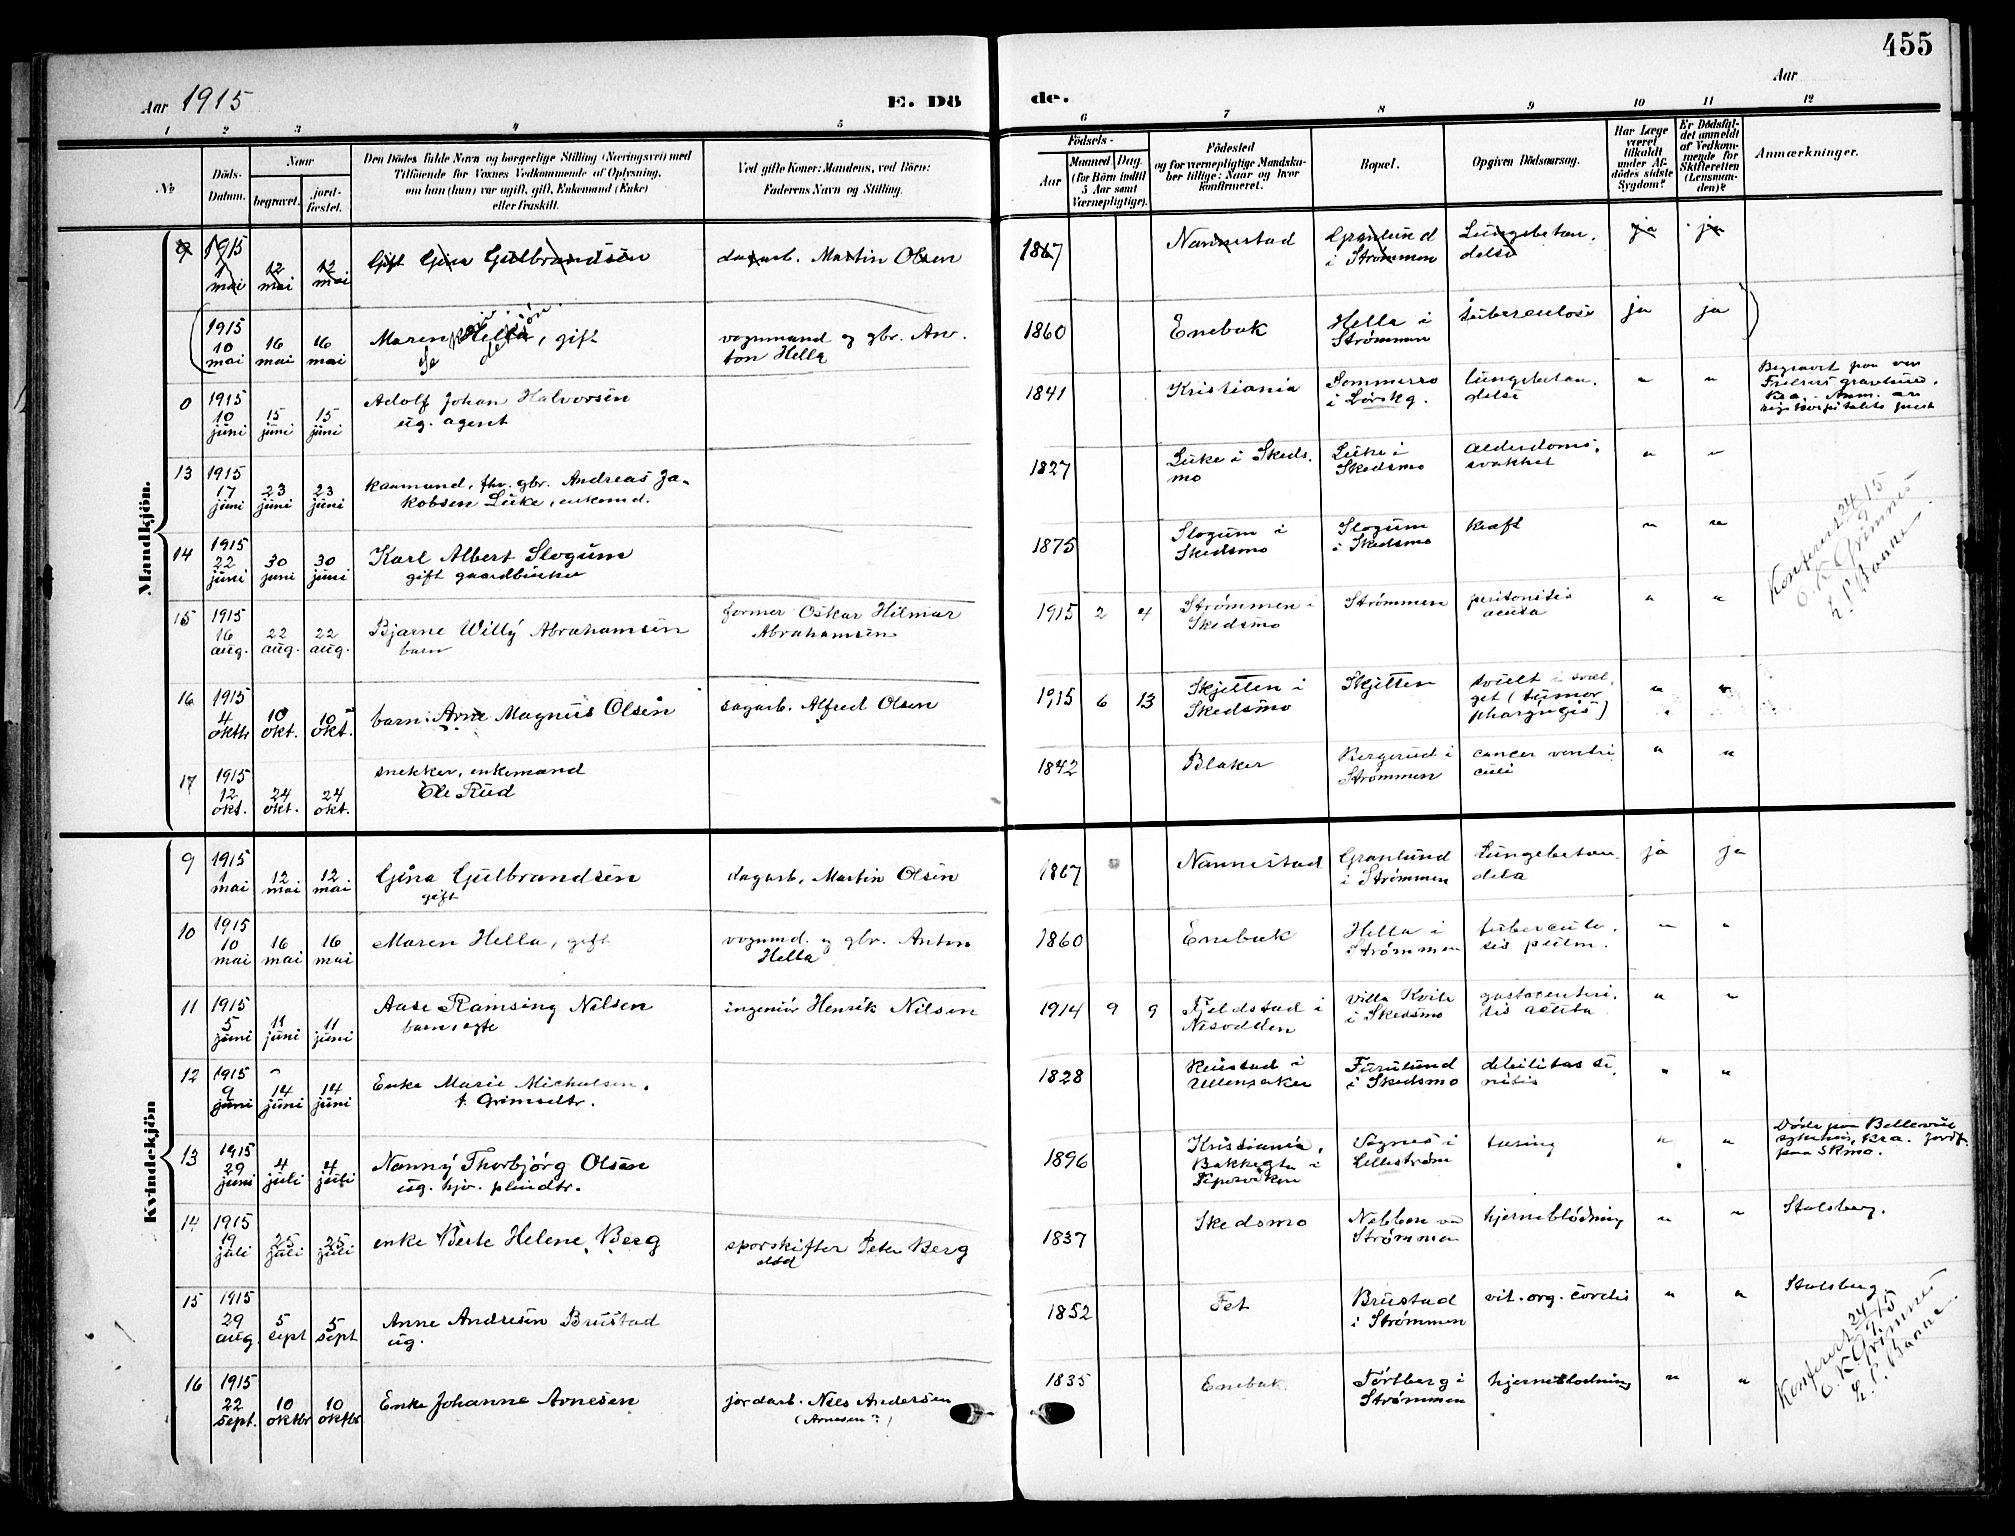 455
Aar 1915
E. Dö
de.
Aar
1 2 3 4 5 6 7 8 9 10 11 12
No
Döds-Datum.
Naar
begravet.
jord-fæstet.
Den Dödes fulde Navn og borgerlige Stilling (Næringsvei) med
Tilföiende for Voxnes Vedkommende af Oplysning,
om han (hun) var ugift, gift, Enkemand (Enke)
eller fraskilt.
Ved gifte Koner: Mandens, ved Börn:
Faderens Navn og Stilling.
Födsels-
Aar
Maaned Dag
(for Börn indtil
5 Aar samt
Værnepligtige).
Födested
og for værnepligtige Mandska-
ber tillige: Naar og hvor
konfirmeret.
Bopæl.
Opgiven Dödsaarsag.
Har Læge
været
tilkaldt
under Af-
dödes sidste
Sygdom?
Er Dödsfal-
det anmeldt
af Vedkom-
mende for
Skifteretten
(Lensman-
den)?
Anmærkninger.
Mandkjön.
9 1915 1 mai 12 mai 12 mai Gift Gina Gulbrandsen dagarb. Martin Olsen 1867 Nannestad Granlund i Strømmen Lungebetændelse ja ja
1915 10 mai 16 mai 16 mai Maren Hella, gift vognmand og gbr. Anton Hella 1860 Enebak Hella i Strømmen tuberculose ja ja
Se kvindekjøn.
0 1915 10 juni 15 juni 15 juni Adolf Johan Halvorsen
ug. agent 1841 Kristiania Sommerro i Lørskg. lungebetændelse " " Begravet paa vor
Frelsers gravlund,
Kra. Anm. av
rigshospitalets prest
13 1915 17 juni 23 juni 23 juni kaarmand, fhv. gbr. Andreas Ja-
kobsen Luke, enkemd. 1827 Luke i Skedsmo Luke i Skedsmo alderdomssvakhet " "
14 1915 22 juni 30 juni 30 juni Karl Albert Slogum
gift gaardbruker 1875 Slogum i Skedsmo Slogum i Skedsmo kræft " "
15 1915 16 aug. 22 aug. 22 aug. Bjarne Willy Abrahamsen
barn former Oskar Hilmar Abrahamsen 1915 2 4 Strømmen i Skedsmo Strømmen peritonitis acuta " "
16 1915 4 oktbr 10 okt. 10 okt. barn: Arne Magnus Olsen sagarb. Alfred Olsen 1915 6 13 Skjetten i Skedsmo Skjetten svulst i svælget (tumor pharyngis) " "
17 1915 12 okt. 24 okt. 24 okt. snekker, enkemand
Ole Rud 1842 Blaker Bergerud i Strømmen cancer ventriculi " "
Konferert 24/9 15
E. K. Grimnes
Kvindekjön
9 1915 1 mai 12 mai 12 mai Gina Gulbrandsen
gift dagarb. Martin Olsen 1867 Nannestad Granlund i Strømmen Lungebetændelse ja ja
10 1915 10 mai 16 mai 16 mai Maren Hella, gift vognmd. og gbr. Anton Hella 1860 Enebak Hella i Strømmen tuberculosis pulm. " "
11 1915 5 juni 11 juni 11 juni Aase Ramsing Nilsen
barn, egte ingeniør Henrik Nilsen 1914 9 9 Fjeldstad i Nesodden Villa Kvile i Skedsmo gastroenteritis acuta " "
12 1915 9 juni 14 juni 14 juni Enke Marie Michelsen,
f. Grimseltr. 1828 Reistad i Ullensaker Furulund i Skedsmo debilitas senilis " "
13 1915 29 juni 4 juli 4 juli Nanny Thorbjørg Olsen
ug. hjv. pleiedtr. 1896 Kristiania, Bakkegtn i Pipervïken Sagnes i Lillestrøm tæring " " Døde paa Bellevue
sykehus, Kra. jordf.
paa Skmo.
14 1915 19 juli 25 juli 25 juli enke Berte Helene Berg sporskifter Peter Berg 1837 Skedsmo Nebben ved Strømmen hjerneblødning " " Stalsberg.
15 1915 29 aug. 5 sept 5 sept Anne Andresen Brustad
ug. 1852 Fet Brustad i Strømmen vit. org. cordis " " Stalsberg
16 1915 22 sept. 10 oktbr 10 oktbr Enke Johanne Arnesen jordarb. Nils Andersen
(Arnesen?) 1835 Enebak Tortberg i Strømmen hjerneblødning " "
Konferert 24/9 15
E. K. Grimnes